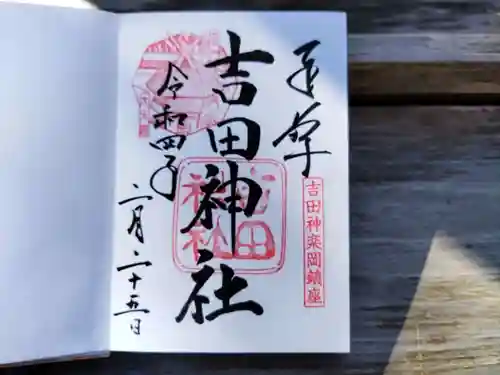 奉拝
吉田神楽岡鎮座
吉田神社
吉田
神社
令和四年
二月二十五日